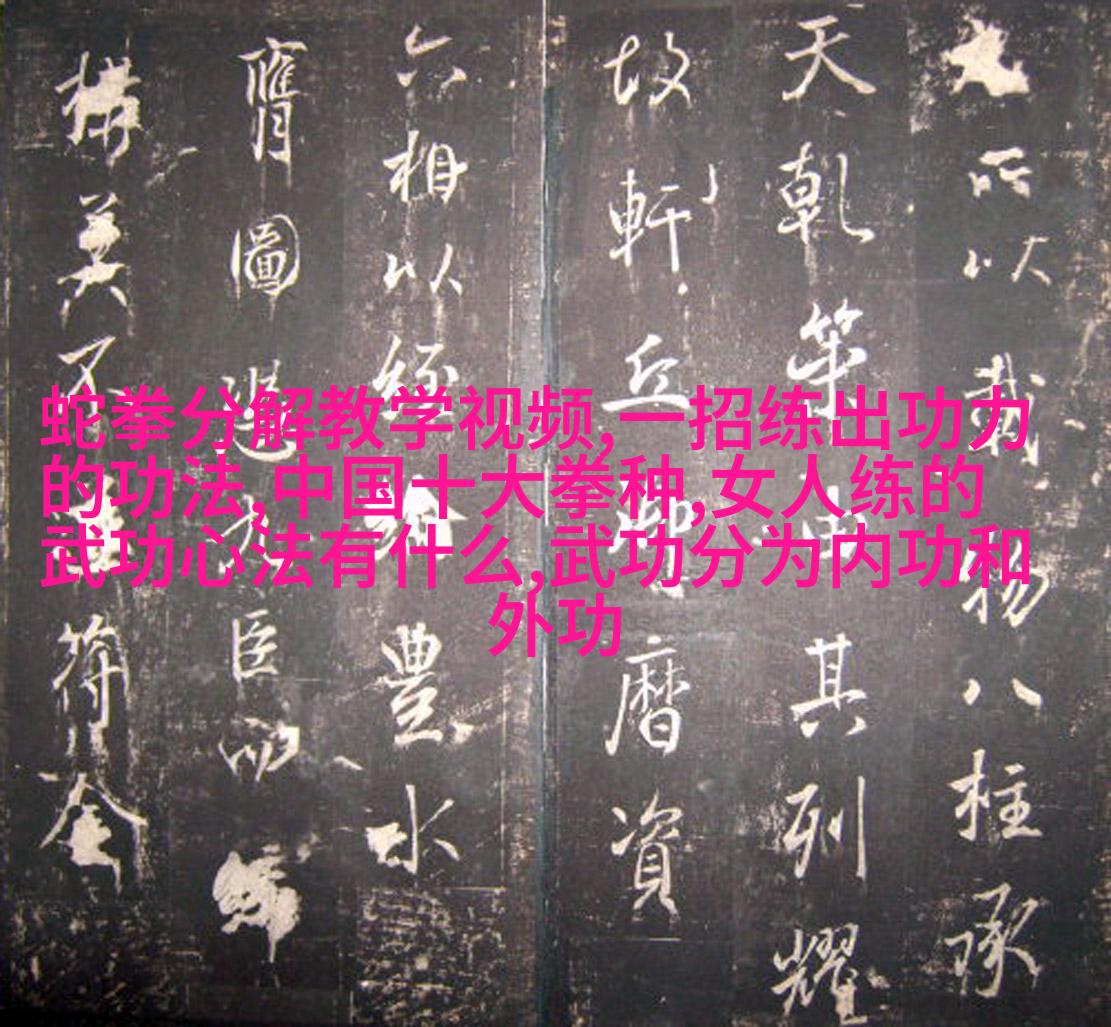 蛇拳分解教学视频,一招练出功力
的功法,中国十大拳种,女人练的
武功心法有什么,武功分为内功和
外功
所以裁物八柱承
天乾其列耀
故軒丘曆資
六相以經豐水
膺圖臣
搆美不符